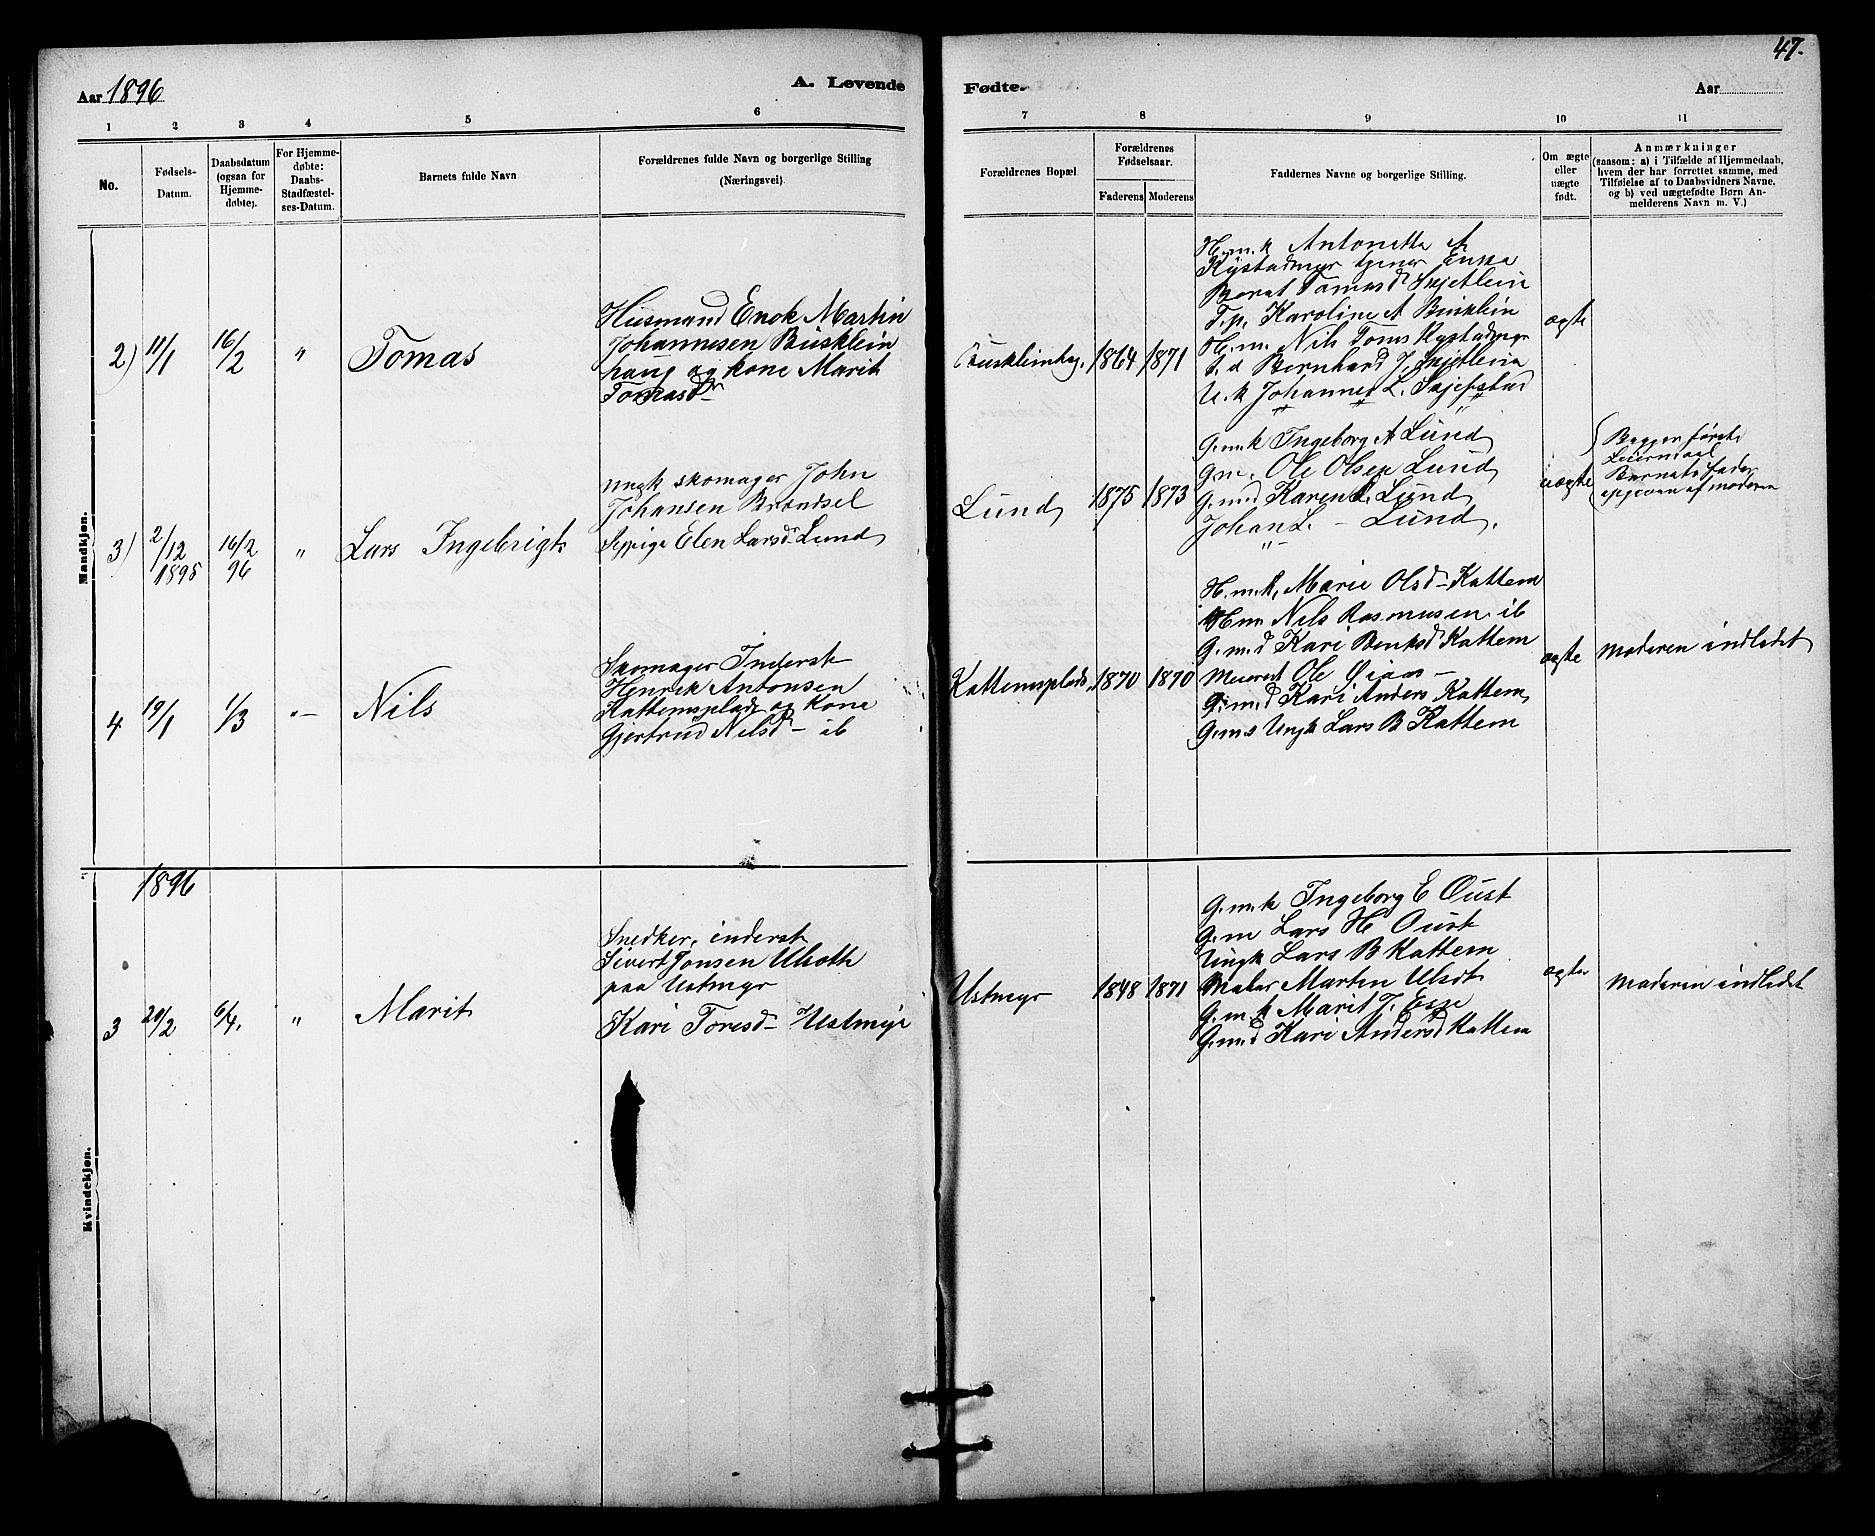 Aar 1896
A. Levende
Fødte.
Aar
47.
1 2 3 4 5 6 7 8 9 10 11
No.
Fødsels-
Datum.
Daabsdatum
(ogsaa for
Hjemme-
døbte).
For Hjemme-
døbte:
Daabs-
Stadfæstel-
ses-Datum.
Barnets fulde Navn
Forældrenes fulde Navn og borgerlige Stilling
(Næringsvei)
Forældrenes Bopæl.
Forældrenes
Fødselsaar.
Faderens Moderens
Faddernes Navne og borgerlige Stilling.
Om ægte
eller
uægte
født.
Anmærkninger
(saasom: a) i Tilfælde af Hjemmedaab,
hvem der har forrettet samme, med
Tilføielse af to Daabsvidners Navne,
og b) ved uægtefødte Børn An-
melderens Navn m. V.)
Mandkjøn.
2) 11/1 16/2 " Tomas
Husmand Enok Martin
Johannesen Büsklein
haug og kone Marit
Tomasdr
Büskleinhag. 1864 1871
H.m.k Antonetta A
Rystadmyr tjener
Berat Tomasd Skjetlein
T.p. Karoline A Büsklein
H.m. Nils Toms Rystadmyr
t.d Bernhard J. Skjetlein
U.k Johannes L. Skjefstad
ægte
3) 2/12 1895 16/2 96 " Lars Ingebrigt
ungk skomager John
Johansen Brøndsel
Pige Elen Larsdr Lund
Lund 1875 1873
G.m.k Ingeborg A Lund
Gm. Ole Olsen Lund
G.m.d Karen L. Lund
Johan L. – Lund.
uægte
Begges første
Leiermaal
Barnets fader
opgiven af moderen
4 19/1 1/3 "– Nils
Skomager Inderst
Henrik Antonsen
Kattemsplads og kone
Gjertrud Nilsdr – ib
Kattemsplads. 1870 1870
H.m.k. Marie Olsd – Kattem
Hm Nils Rasmusen ib
G.m.d Kari Benksd Kattem
Ole
G.m.d Kari Anders Kattem
G.m.s Ungk Lars B Kattem
ægte
Moderen indledet
Kvindekjøn.
1896
3 20/2 6/4. " Marit
Snedker, inderst
Sivert Jonsen Ulsoth
paa Ustmyr
Kari Toresd – Ustmyr
Ustmyr 1848 1871
G.m.k Ingeborg E Oust
G.m Lars H Oust
Ungk Lars B Kattem
Maler Marten Ulsdt
G.m.k Marit J. Esge
G.m.d Kari Andersd Kattem
ægte
Moderen indledet